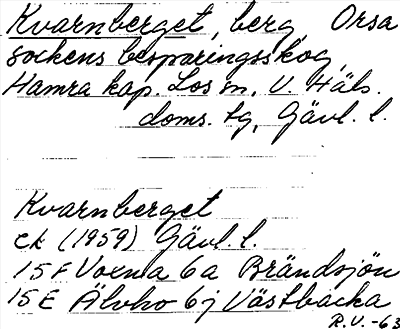 Kvarnberget, berg Orsa
sockens besparingsskog,
Hamra kap. Los sn, V. Häls.
doms. tg, Gävl. l.
Kvarnberget
ek (1959) Gävl. l.
15 F Voxna 6a Brändsjön
15 E Älvho 6j Västbacka
R.V. -63